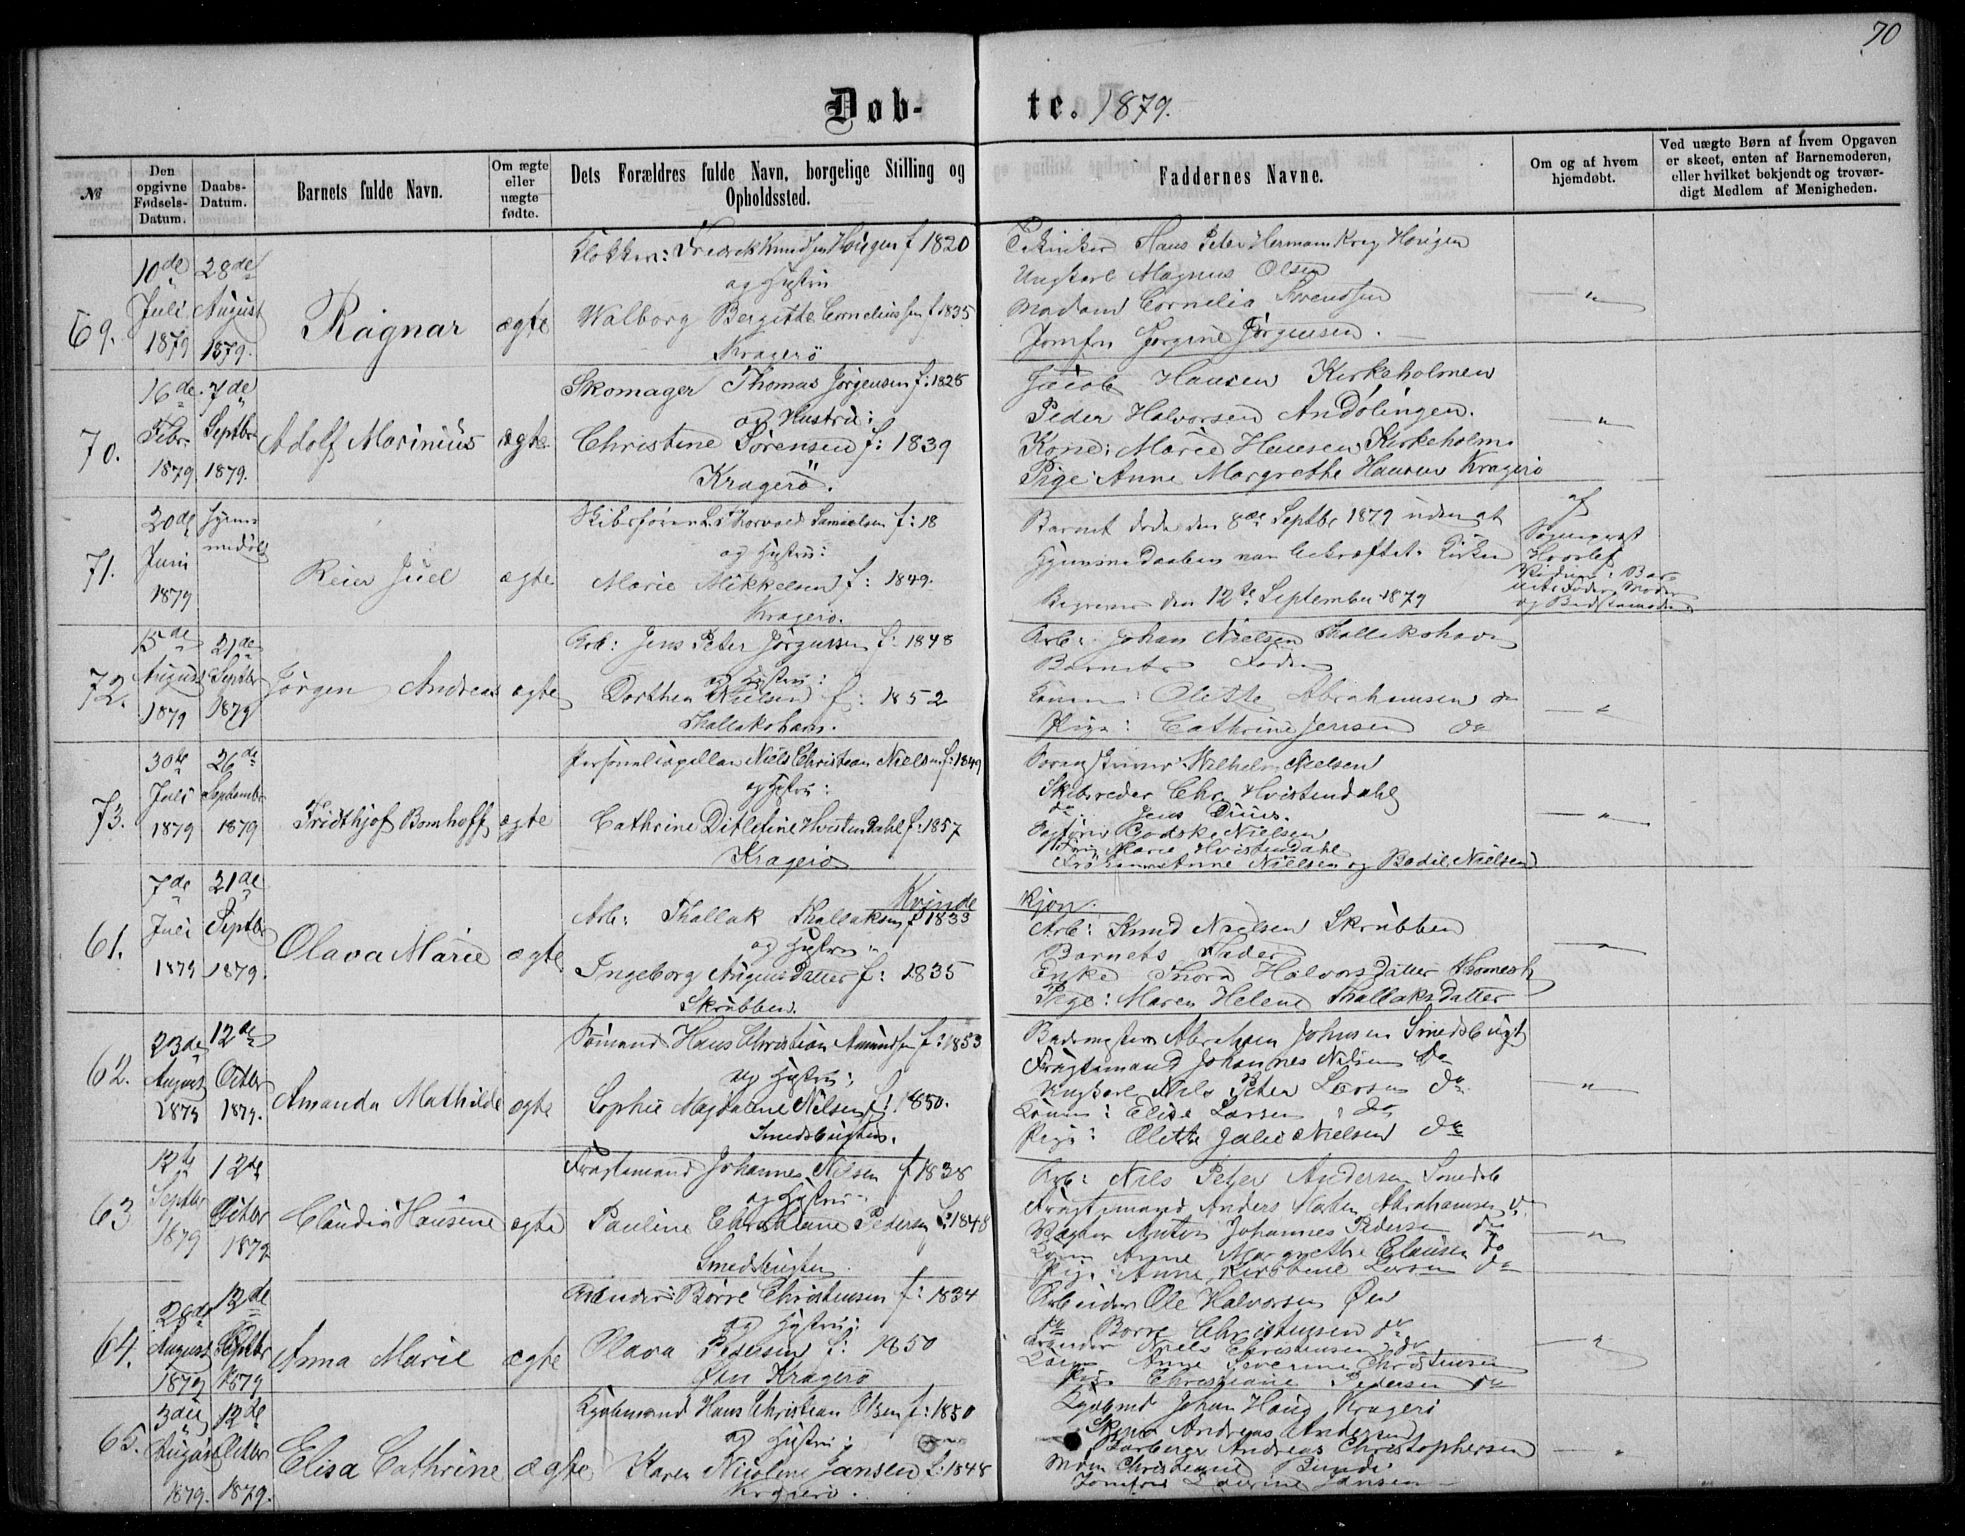 70
Døb- te. 1879.
№
Den opgivne Fødsels-Datum.
Daabs-Datum.
Barnets fulde Navn.
Om ægte eller uægte fødte.
Dets Forældres fulde Navn, borgelige Stilling og Opholdssted.
Faddernes Navne.
Om og af hvem hjemdøbt.
Ved uægte Børn af hvem Opgaven er skeet, enten af Barnemoderen, eller hvilket bekjendt og troværdigt Medlem af Menigheden.
69.
10de Juli 1879
28de August 1879.
Ragnar
ægte
Klokker: Fredrek Knudsen Hoigen f 1820
og Hustru
Walborg Bergitte Corneliussen f 1835
Kragerö
Hans Peter Hermann Krog Hoigen
Ungkarl Magnus Olsen
Madam Cornelia Svendsen
Jomfru Jörgine Jörgensen.
— " —
70.
16de Febr. 1879
7de Septbr 1879.
Adolf Marinius
ægte
Skomager Thomas Jörgensen f: 1825
og Hustru:
Christine Sörensen f: 1839
Kragerö.
Jacob Hansen Kirkeholmen
Peder Halvorsen Andölingen.
Kone: Marie Hansen Kirkeholm.
Pige: Anne Margrethe Hansen Kragerö
— " —
71.
20de Juni 1879
hjemmedöbt
Reier Juel
ægte
Skibsförer Thorvald Samuelsen f: 18
og Hustru:
Marie Mikkelsen f: 1849.
Kragerö.
Barnet döde den 8de Septbr 1879 uden at
Hjemmedaaben var bekræftet i Kirken
Begraven den 12te September 1879
af
Sogneprest
Vidner: Bar-
nets Fader, Moder
og Bedstemoder
72.
15de August 1879
21de Septbr 1879
Jörgen Andreas
ægte
Arb: Jens Peter Jörgensen f: 1848
og Hustru:
Dorthea Nielsen f: 1852
Thallakshavn.
Arb: Johan Nielsen Thallakshavn
Barnets Fader
Konen: Olette Abrahamsen do
Pige: Cathrine Jensen do
— " —
73.
30te Juli 1879
26de September 1879
Fridthjof Bomhoff
ægte
Personelcapellan Niels Christian Nielsen f: 1849
og Hustru:
Cathrine Ditlefine Hvistendahl f: 1857
Kragerö
Wilhelm Nielsen
Skibsreder Chr. Hvistendahl
do Jens Duus.
Godske Nielsen
Marie Hvistendahl
Anne Nielsen og Bodil Nielsen
— " —
Kvinde kjön.
61.
7de Juli 1879
21de Septbr 1879.
Olava Marie
ægte
Arb: Thallak Thallaksen f 1833
og Hustru:
Ingeborg Augunsdatter f: 1835
Skrubben.
Arb: Knud Nielsen Skrubben
Barnets Fader
Enke Thora Halvorsdatter
Pige: Maren Helene Thallaksdatter
— " —
62.
23de August 1879
12de Octbr 1879.
Amanda Mathilde
ægte
Sömand Hans Christian Amundsen f: 1853
og Hustru:
Sophie Magdalene Nilsen f: 1850.
Smedsbugten.
Abraham Johnsen Smedsbugt
Fragtemand Johannes Nilsen do
Ungkarl Nils Peter Larsen do
Konen: Elise Larsen do
Pige: Olette Julie Nielsen do
— " —
63
12te Septbr 1879
12te Octbr 1879
Claudia Hansine
ægte
Fragtemand Johannes Nilsen f 1838
og Hustru:
Pauline Christiane Pedersen f: 1848
Smedsbugten
Arb: Nils Peter Andersen Smedsb
Fragtemand Anders Abrahamsen do
Anton Johannes Pedersen do
Konen Anne Margrethe Clausen do
Pige: Anne Kirstine Larsen do
— " —
64.
28de August 1879
12de Octbr 1879
Anna Marie
ægte
Arbeider: Börre Christensen f: 1834
og Hustru:
Olava Pedersen f: 1850
Öen Kragerö
Arbeider Ole Halvorsen Öen
do Börre Christensen do
Arbeider Niels Christensen do
Konen Anne Severine Christensen
Pige Christiane Pedersen do
— " —
65.
3die August 1879.
12te Octbr 1879.
Elisa Cathrine
ægte
Kjöbmand Hans Christian Olsen f: 1850
og Hustru:
Karen Nicoline Jansen f: 1848
Kragerö.
Kjöbmd Johan Haug Kragerö
Andreas Andersen
Barberer Andreas Christophersen
Christiane
Jomfru Jansen
— " —